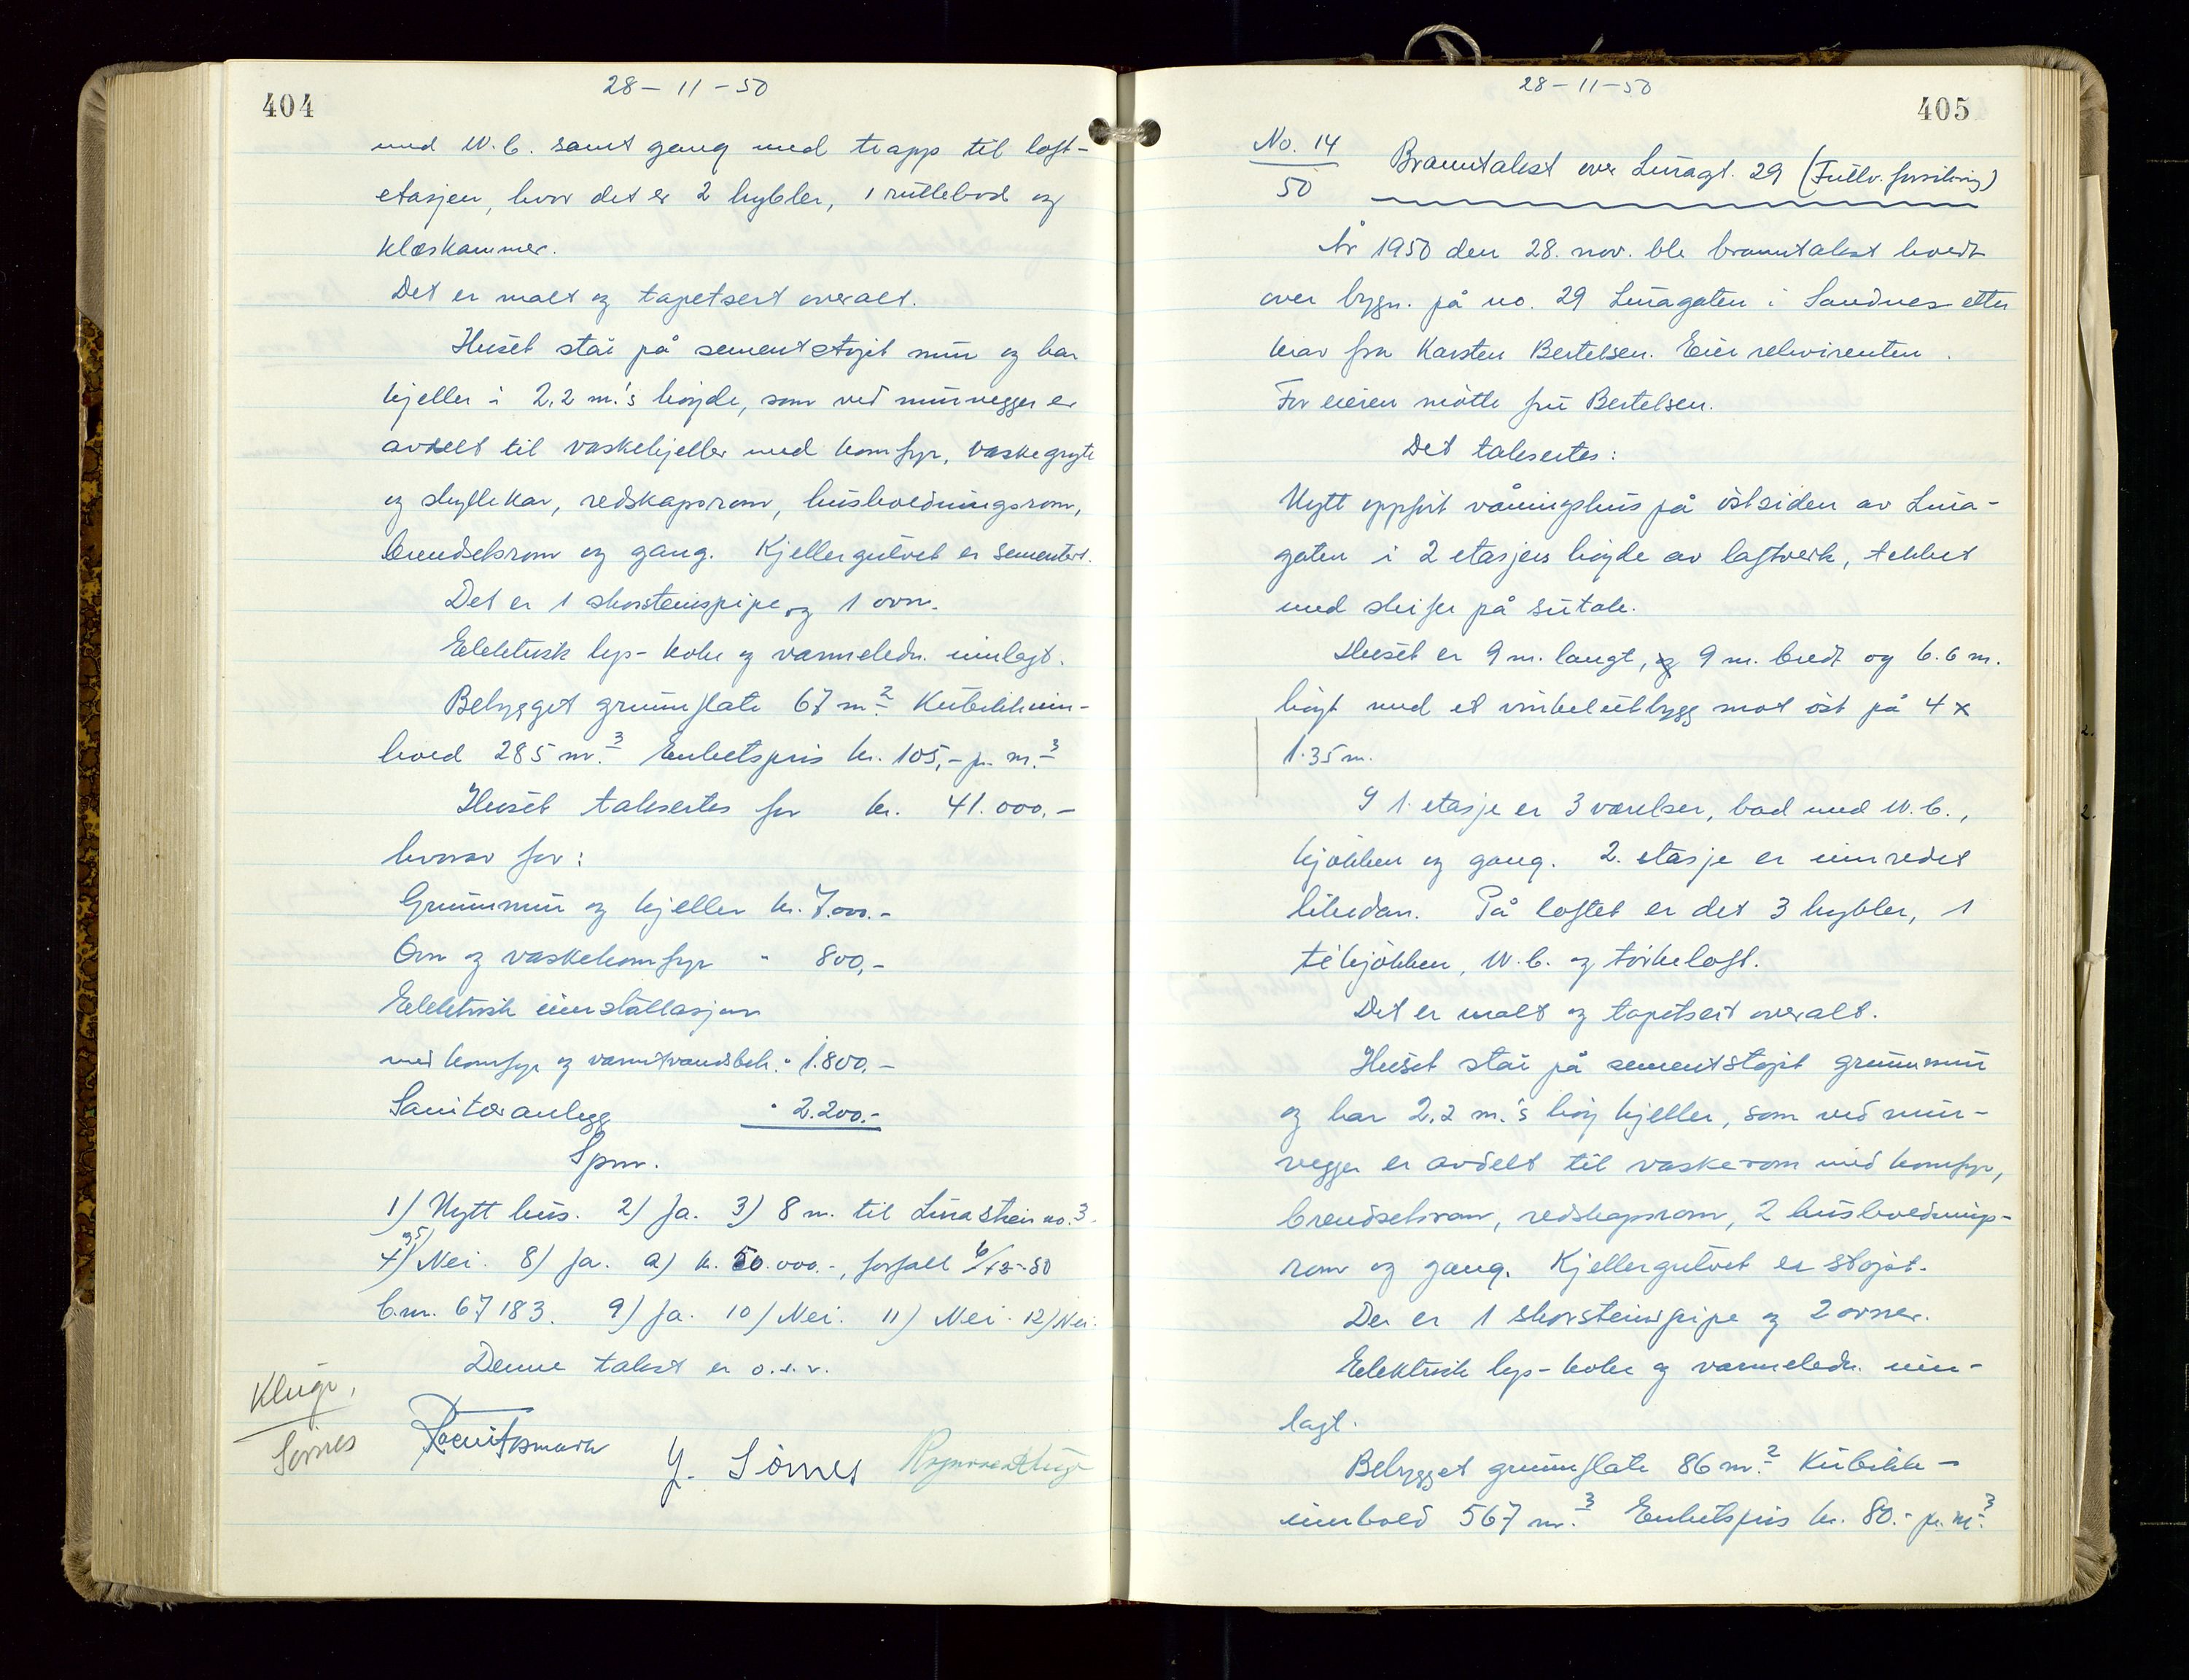 404
28-11-50
med W.C. samt gang med trapp til loft-
etasjen, hvor det er 2 hybler, 1 rullebod og
klæskammer.
Det er malt og tapetsert overalt.
Huset står på sementstøpt mur og har
kjeller i 2,2 m.'s høyde, som ved murvegger er
avdelt til vaskekjeller med komfyr, vaskegryte
og skyllekar, redskapsrom, husholdningsrom,
brendselsrom og gang. Kjellergulvet er sementert.
Det er 1 skorsteinspipe og 1 ovn.
Elektrisk lys- koke og varmeledn. innlagt.
Bebygget grunnflate 67 m.² Kubikkinn-
hold 285 m.³ Enhetspris kr. 105,- p. m.³
Huset taksertes for kr. 41.000,-
hvorav for:
Grunnmur og kjeller kr. 7.000.-
Ovn og vaskekomfyr " 800,-
Elektrisk innstallasjon
med komfyr og varmtvandsbeh. " 1.800,-
Sanitæranlegg " 2.200.-
Spm.
1) Nytt hus. 2) Ja. 3) 8 m. til Lura no. 3.
Nei. 8) Ja. a) kr. 50.000.-, forfall 6/12-50
b.nr. 67183. 9) Ja. 10) Nei. 11) Nei. 12) Nei.
Denne takst er o.s.v.
Kluge,
Sörnes
Y. Sörnes
405
28-11-50
No. 14
50
Branntakst over Luragt. 29 (Fullv. forsikring)
År 1950 den 28. nov. ble branntakst holdt
over bygn. på no. 29 Luragaten i Sandnes etter
krav fra Karsten Bertelsen. Eier rekvirenten.
For eieren møtte fru Bertelsen.
Det taksertes:
Nytt oppført våningshus på östsiden av Lura-
gaten i 2 etasjers høyde av laftverk, tekket
med skifer på sutak.
Huset er 9 m. langt, 9 m. bredt og 6.6 m.
høyt med et vinkelutbygg mot öst på 4 x
1.35 m.
I 1. etasje er 3 værelser, bad med W.C.,
kjökken og gang. 2. etasje er innredet
likedan. På loftet er det 3 hybler, 1
tékjökken, W.C. og törkeloft.
Det er malt og tapetsert overalt.
Huset står på sementstøpt grunnmur
og har 2,2 m.'s høy kjeller, som ved mur-
vegger er avdelt til vaskerom med komfyr,
brendselsrom, redskapsrom, 2 husholdnings-
rom og gang. Kjellergulvet er støpt.
Der er 1 skorsteinspipe og 2 ovner.
Elektrisk lys- koke og varmeledn. inn-
lagt.
Bebygget grunnflate 86 m.² Kubikk-
innhold 567 m.³ Enhetspris kr. 80.- pr. m.³